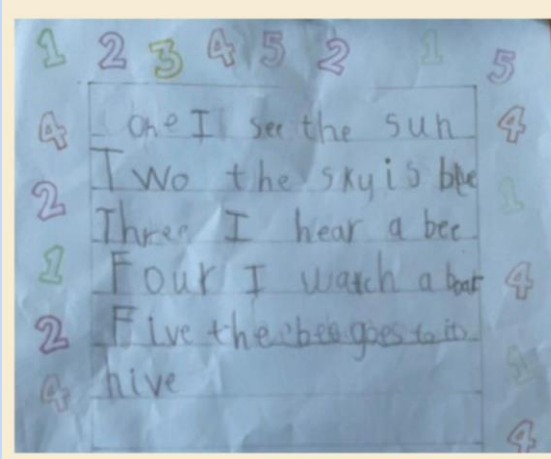 1 2 3 4 5 2 1 5
4 One I see the sun 4
2 Two the sky is blue 1
1 Three I hear a bee
2 Four I watch a boat 4
4 Five the bee goes to it 1
hive
4